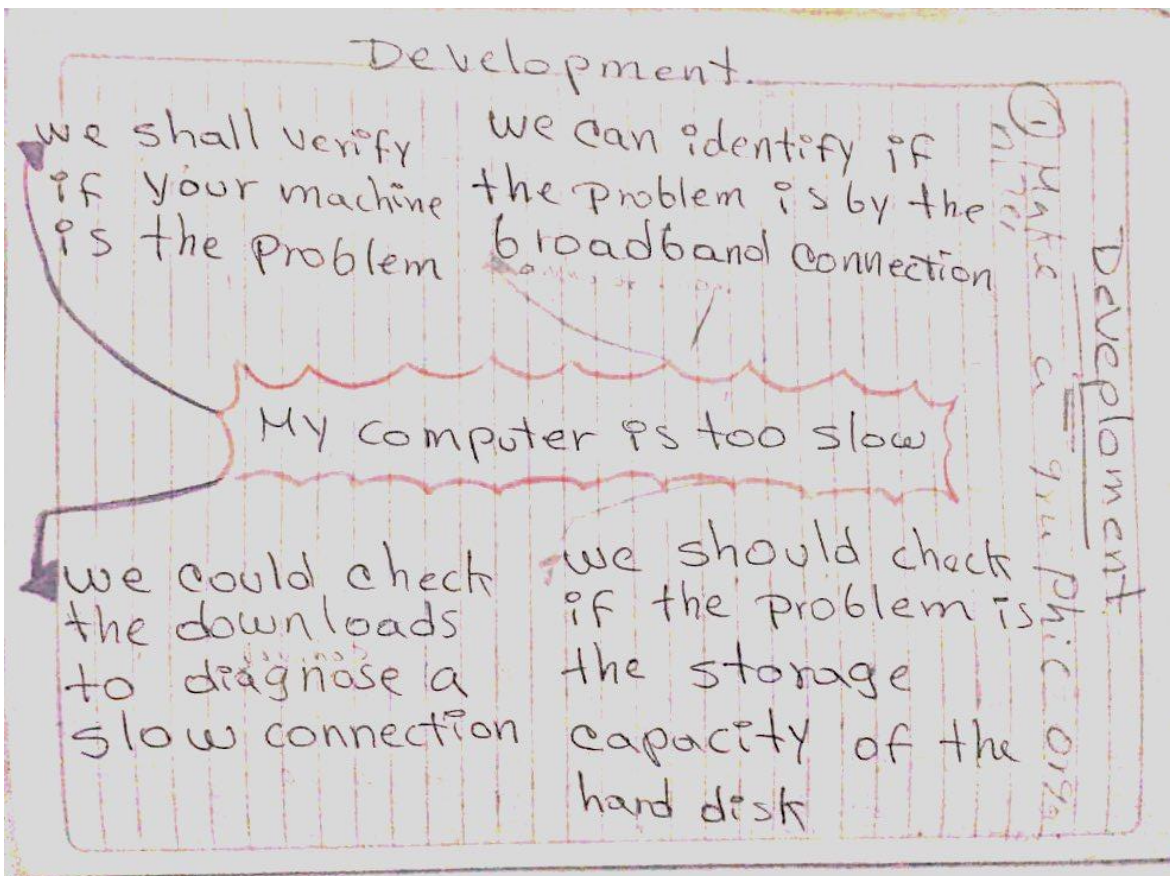 Development.
we shall verify
if your machine
is the problem
we can identify if
the problem is by the
broadband connection
My computer is too slow
we could check
the downloads
to diagnose a
slow connection
we should check
if the problem is
the storage
capacity of the
hard disk
Deveploment
① Make a graphic orga
nizer